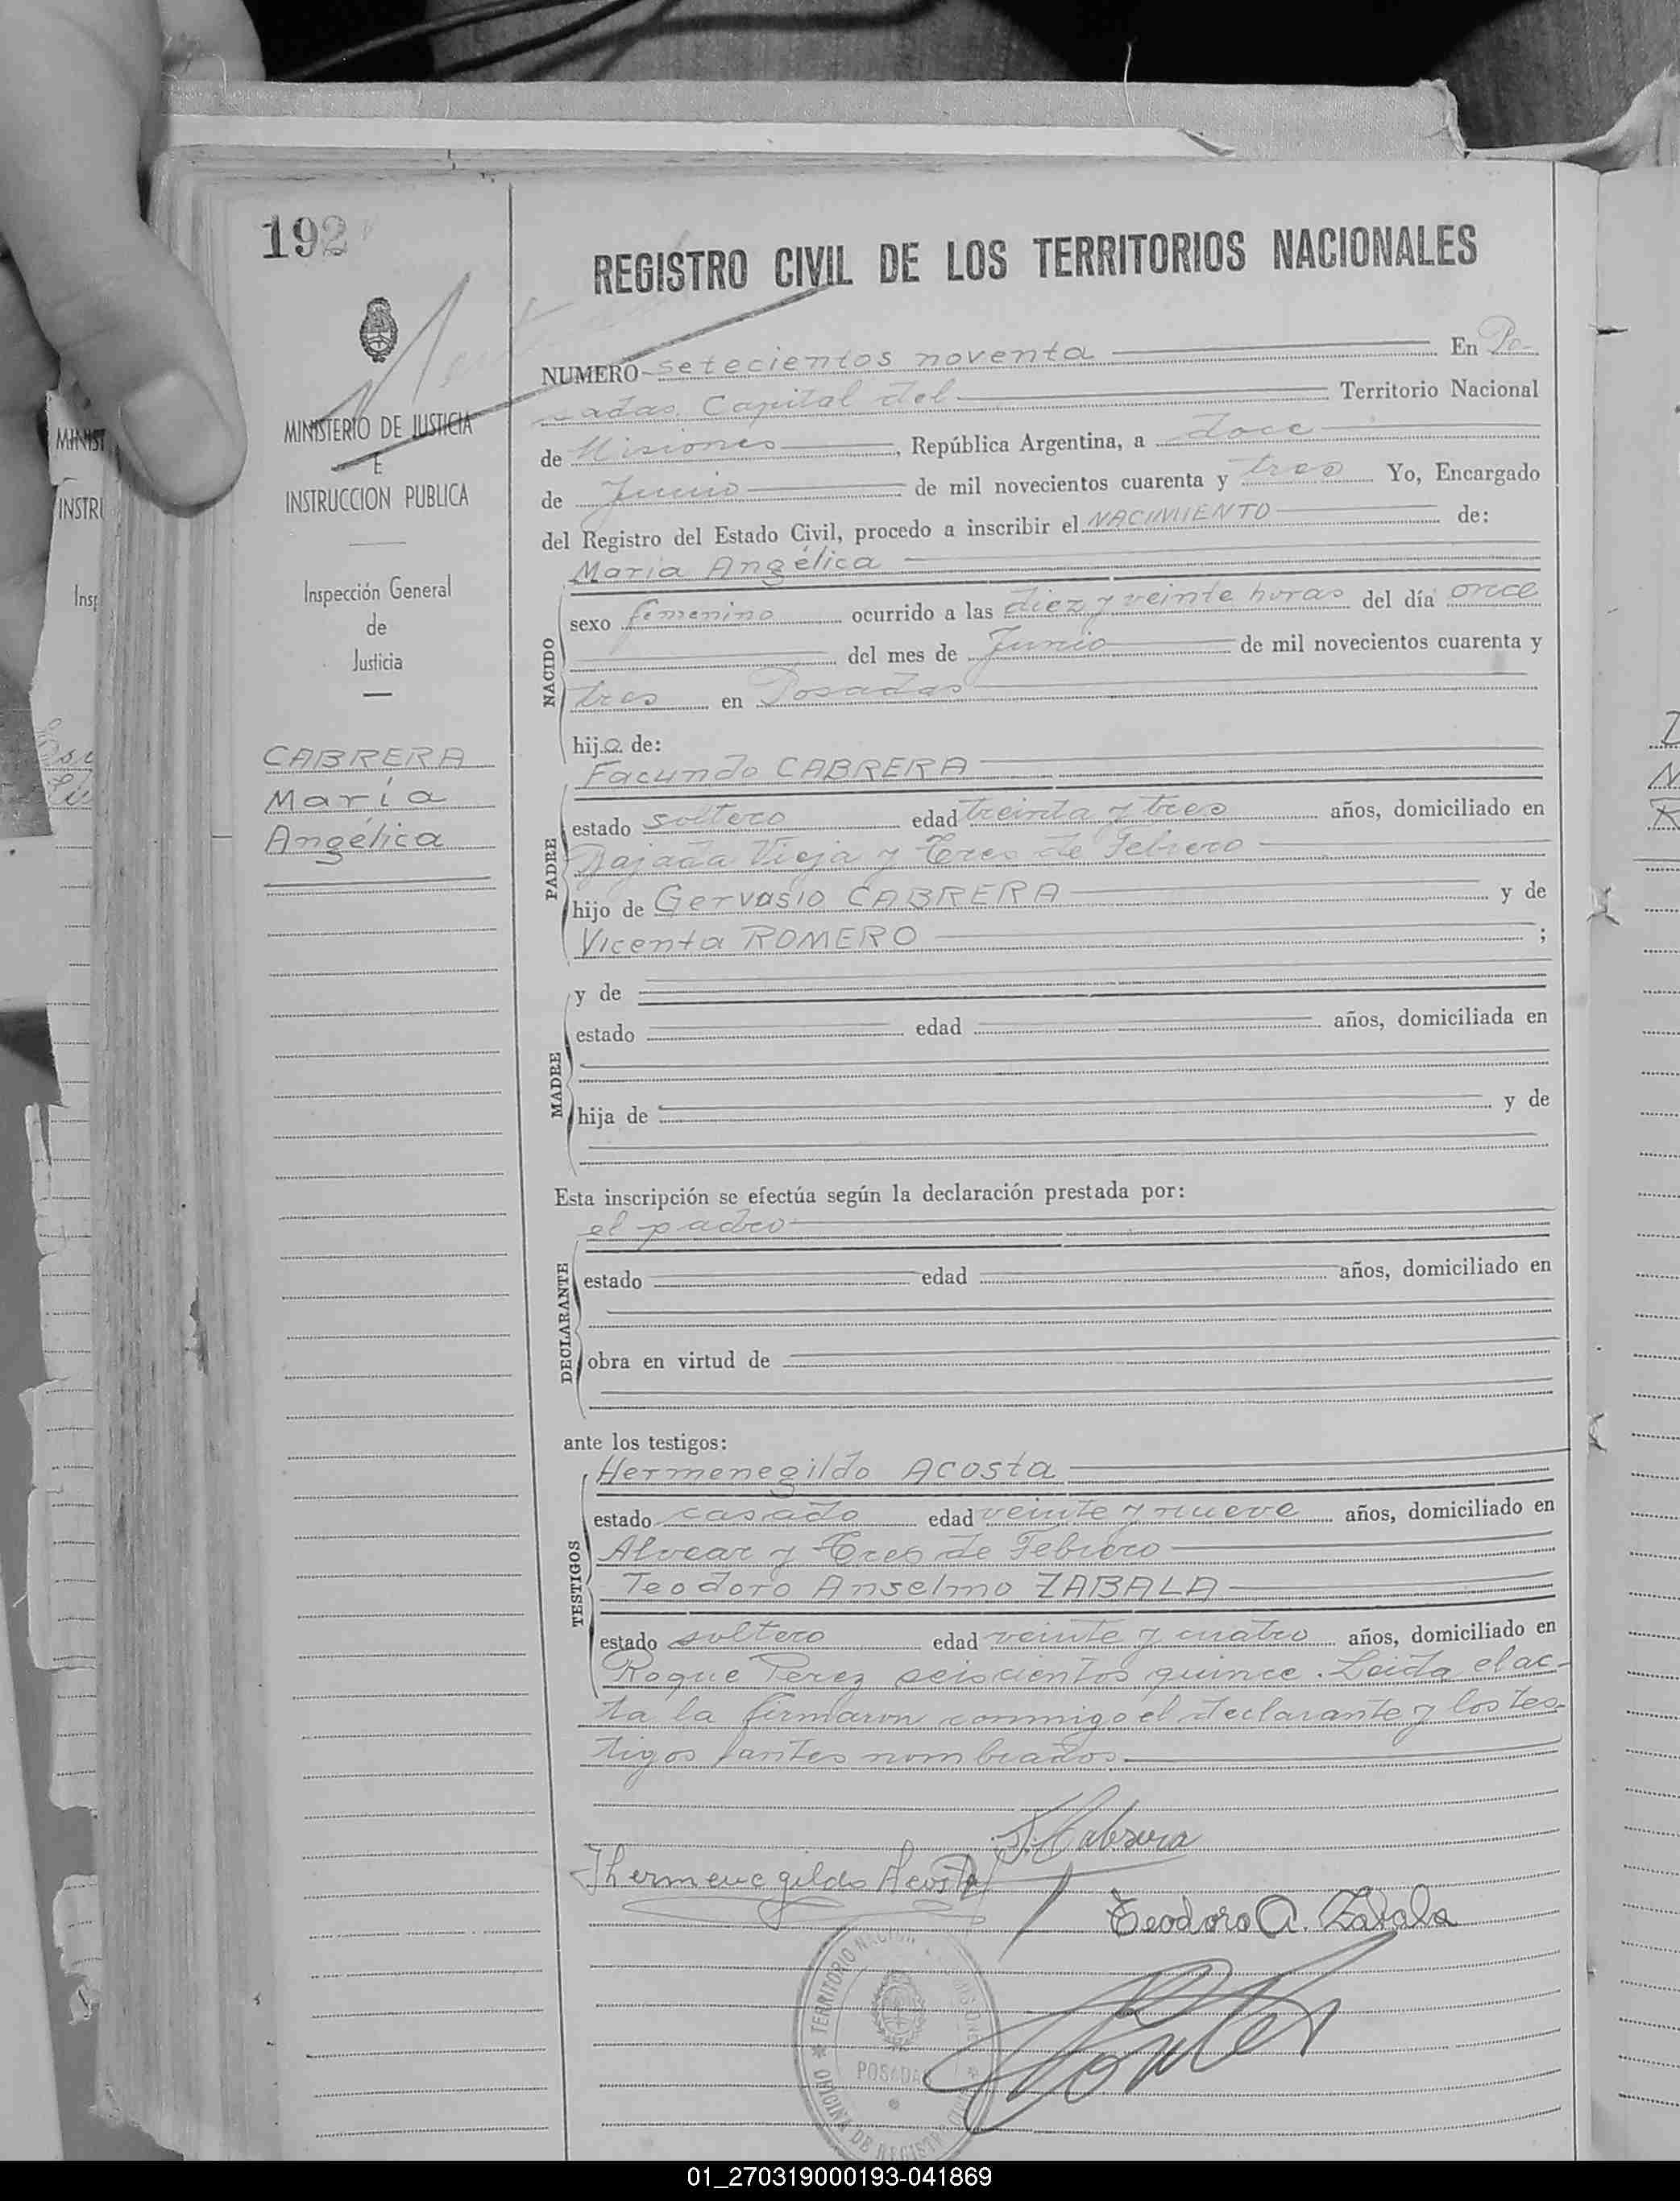 192
REGISTRO CIVIL DE LOS TERRITORIOS NACIONALES
MINISTERIO DE JUSTICIA
E
INSTRUCCION PUBLICA
Inspección General
de
Justicia
CABRERA
María
Angélica
NUMERO setecientos noventa En Po-
sadas, Capital del Territorio Nacional
de Misiones, República Argentina, a doce
de Junio de mil novecientos cuarenta y tres Yo, Encargado
del Registro del Estado Civil, procedo a inscribir el NACIMIENTO de:
María Angélica
NACIDO
sexo femenino ocurrido a las diez y veinte horas del día once
del mes de Junio de mil novecientos cuarenta y
tres en Posadas
hija de:
Facundo CABRERA
PADRE
estado soltero edad treinta y tres años, domiciliado en
Bajada Vieja y Tres de Febrero
hijo de Gervasio CABRERA y de
Vicenta ROMERO ;
MADRE
y de
estado edad años, domiciliada en
hija de y de
Esta inscripción se efectúa según la declaración prestada por:
el padre
DECLARANTE
estado edad años, domiciliado en
obra en virtud de
ante los testigos:
Hermenegildo Acosta
TESTIGOS
estado casado edad veinte y nueve años, domiciliado en
Alvear y Tres de Febrero
Teodoro Anselmo ZABALA
estado soltero edad veinte y cuatro años, domiciliado en
Roque Perez seiscientos quince. Leida el ac-
ta la firmaron conmigo el declarante y los tes-
tigos antes nombrados.
F. Cabrera
Hermenegildo Acosta
Teodoro A. Zabala
OFICINA DE REGISTRO
TERRITORIO NACIONAL
POSADAS
MINIST
INSTRU
Insp
01_270319000193-041869